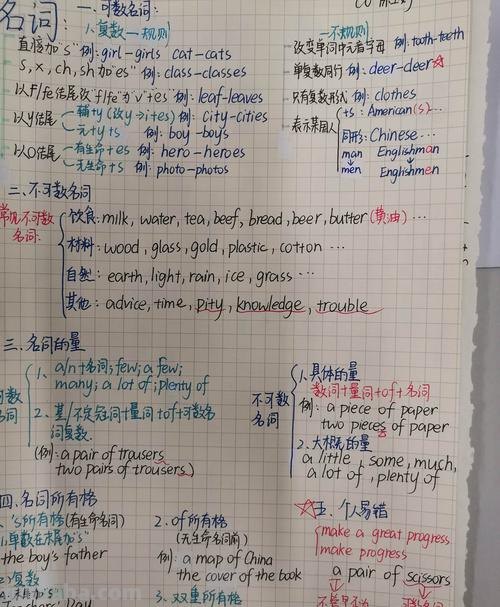 名词:
一.可数名词:
1.复数—规则
直接加"s" 例: girl-girls cat-cats
s, x, ch, sh加"es" 例: class-classes
以f/fe结尾 改"f/fe"为"v+es" 例: leaf-leaves
以y结尾
辅+y(改y→ies) 例: City-cities
元+y+s 例: boy-boys
以o结尾
有生命+es 例: hero-heroes
无生命+s 例: photo-photos
—不规则
改变单词中元音字母 例: tooth-teeth
单复数同行 例: deer-deer☆
只有复数形式 例: clothes
表示某国人
+s: American(s)...
同形: Chinese...
man Englishman
men Englishmen
二.不可数名词
常见不可数名词:
饮食: milk, water, tea, beef, bread, beer, butter(黄油)...
材料: wood, glass, gold, plastic, cotton ...
自然: earth, light, rain, ice, grass ...
其他: advice, time, pity, knowledge, trouble
三.名词的量
可数名词
1、a/n+名词; few; a few;
many; a lot of; plenty of
2、基/不定冠词+量词+of+可数名
词复数.
(例: a pair of trousers
two pairs of trousers)
不可数名词
1、具体的量
数词+量词+of+名词
例: a piece of paper
two pieces of paper
2、大概的量
a little, some, much,
a lot of, plenty of
四.名词所有格
、's所有格(有生命名词)
1.单数在末尾加's
the boy's father
2)复数
Teachers' Day
2. of所有格
(无生命名词前)
例: a map of China
the cover of the book
3. 双重所有格
☆五.个人易错
make a great progress
make progress
a pair of scissors